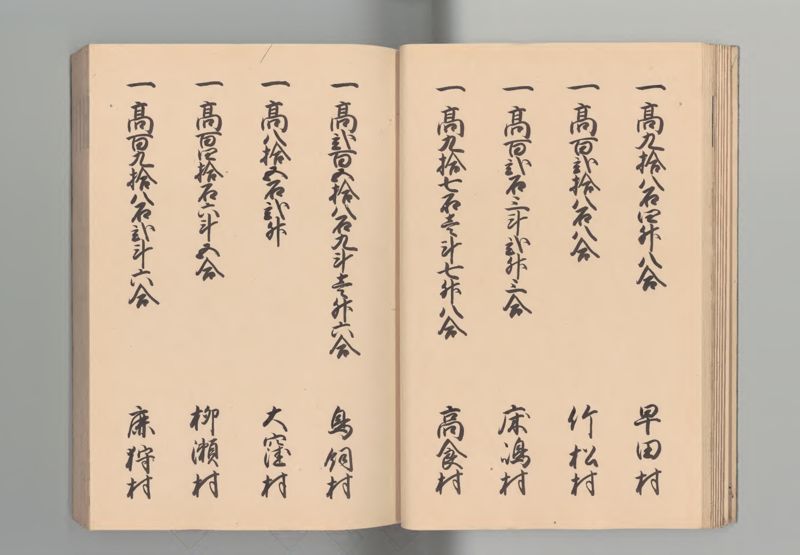 一高九拾八石四升八合 早田村
一高百弐拾八石八合 竹松村
一高百弐石三斗弐升三合 床嶋村
一高九拾七石壱斗七升八合 高食村
一高弐百五拾八石九斗壱升六合 鳥飼村
一高八拾五石弐升 大窪村
一高百四拾石六斗五合 柳瀬村
一高百九拾八石弐斗六合 麻狩村